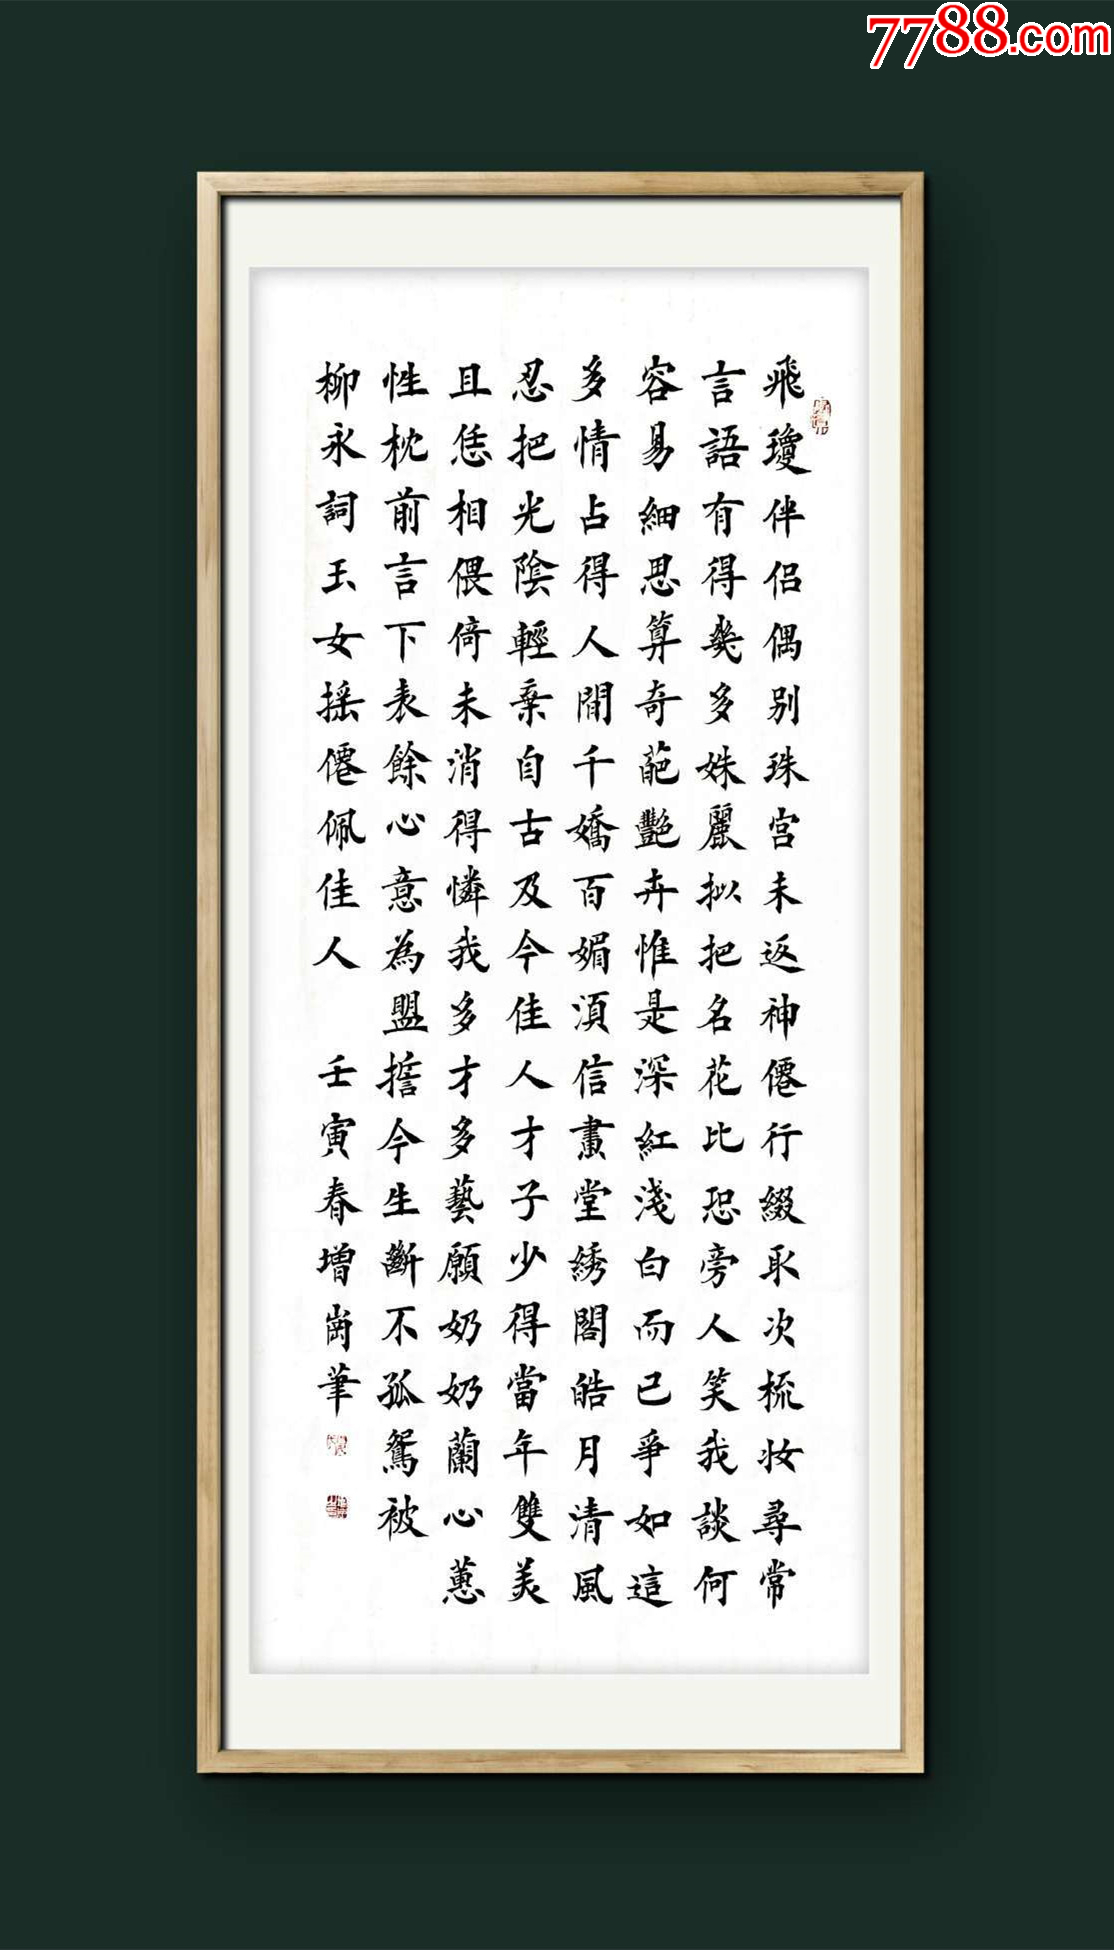 7788.com
飛瓊伴侶偶別珠宮未返神僊行綴取次梳妝尋常
言語有得幾多姝麗擬把名花比恐旁人笑我談何
容易細思算奇葩艷卉惟是深紅淺白而已爭如這
多情占得人間千嬌百媚湏信畫堂綉閣皓月清風
忍把光陰輕棄自古及今佳人才子少得當年雙美
且恁相偎倚未消得憐我多才多藝願奶奶蘭心蕙
性枕前言下表餘心意為盟誓今生斷不孤鴛被
柳永詞玉女搖僊佩佳人 壬寅春增崗筆